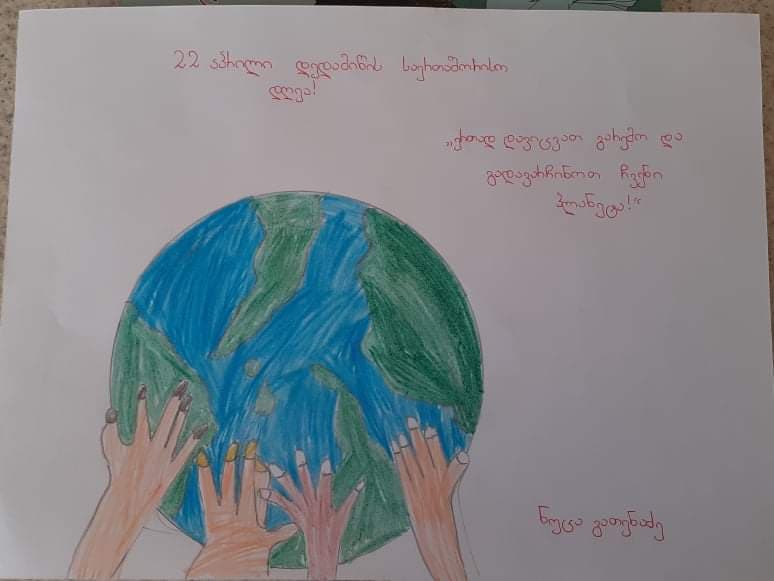 22 აპრილი დედამიწის საერთაშორისო
დღეა!
„ერთად დავიცვათ გარემო და
გადავარჩინოთ ჩვენი
პლანეტა!“
ნუცა გათენაძე